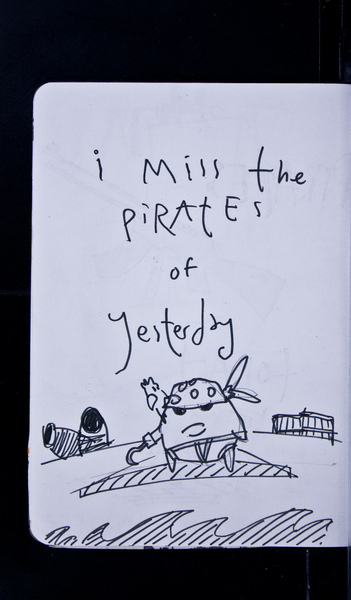 i Miss the
PiRAtEs
of
yesterday